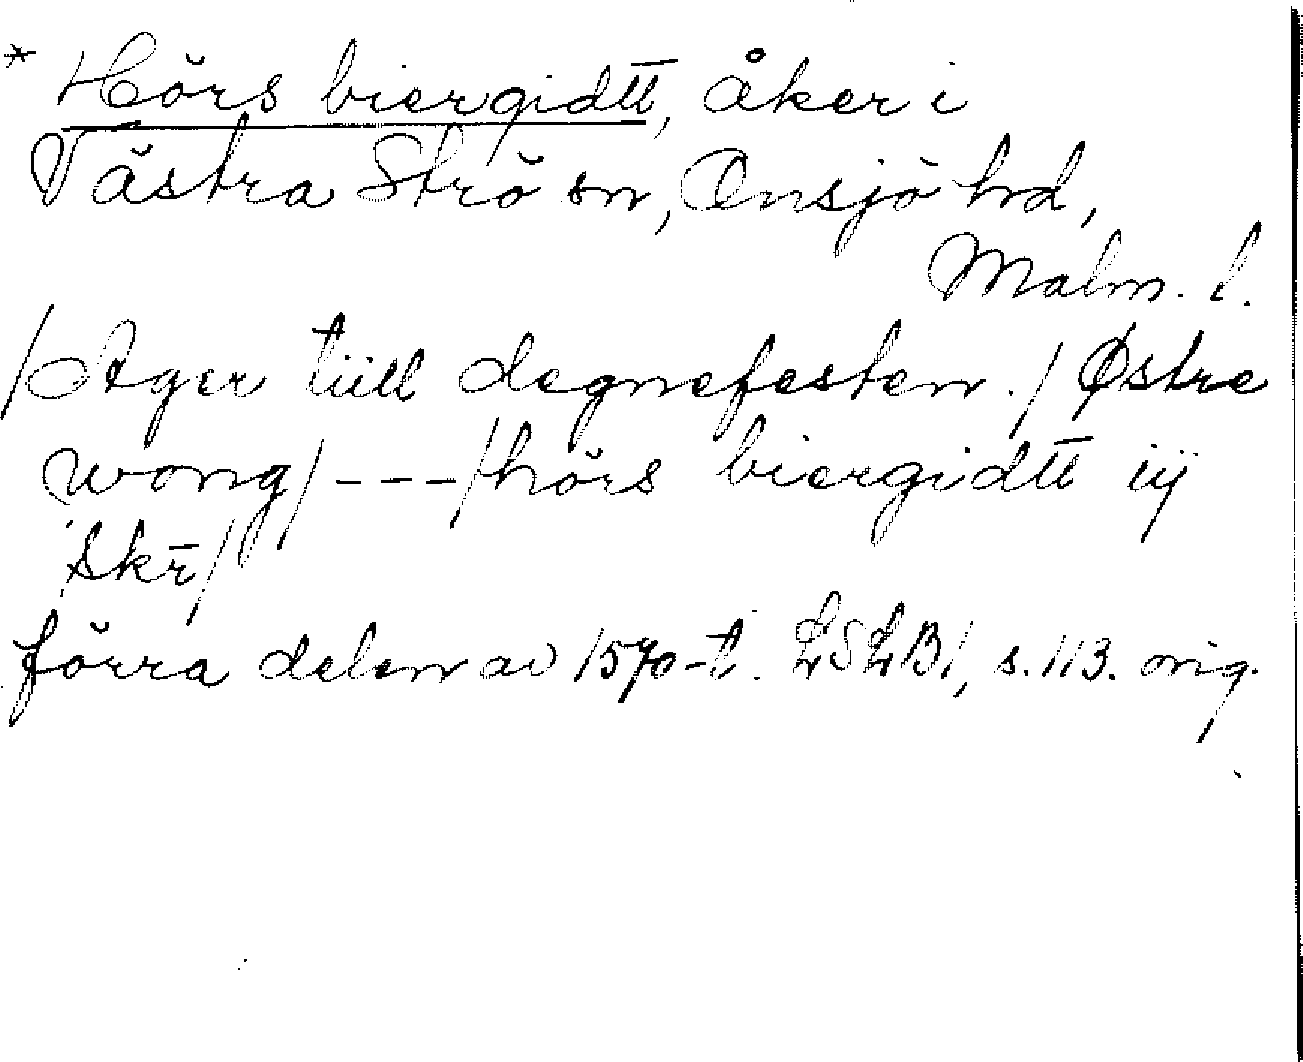 * Hörs biergidtt, åker i
Västra Strö sn, Onsjö hd,
Malm. l.
/Ager tiill degnefesten./Østre
wong/---/hörs biergidtt iij
skr̄/
förra delen av 1570-t. LSLB1, s.113. orig.